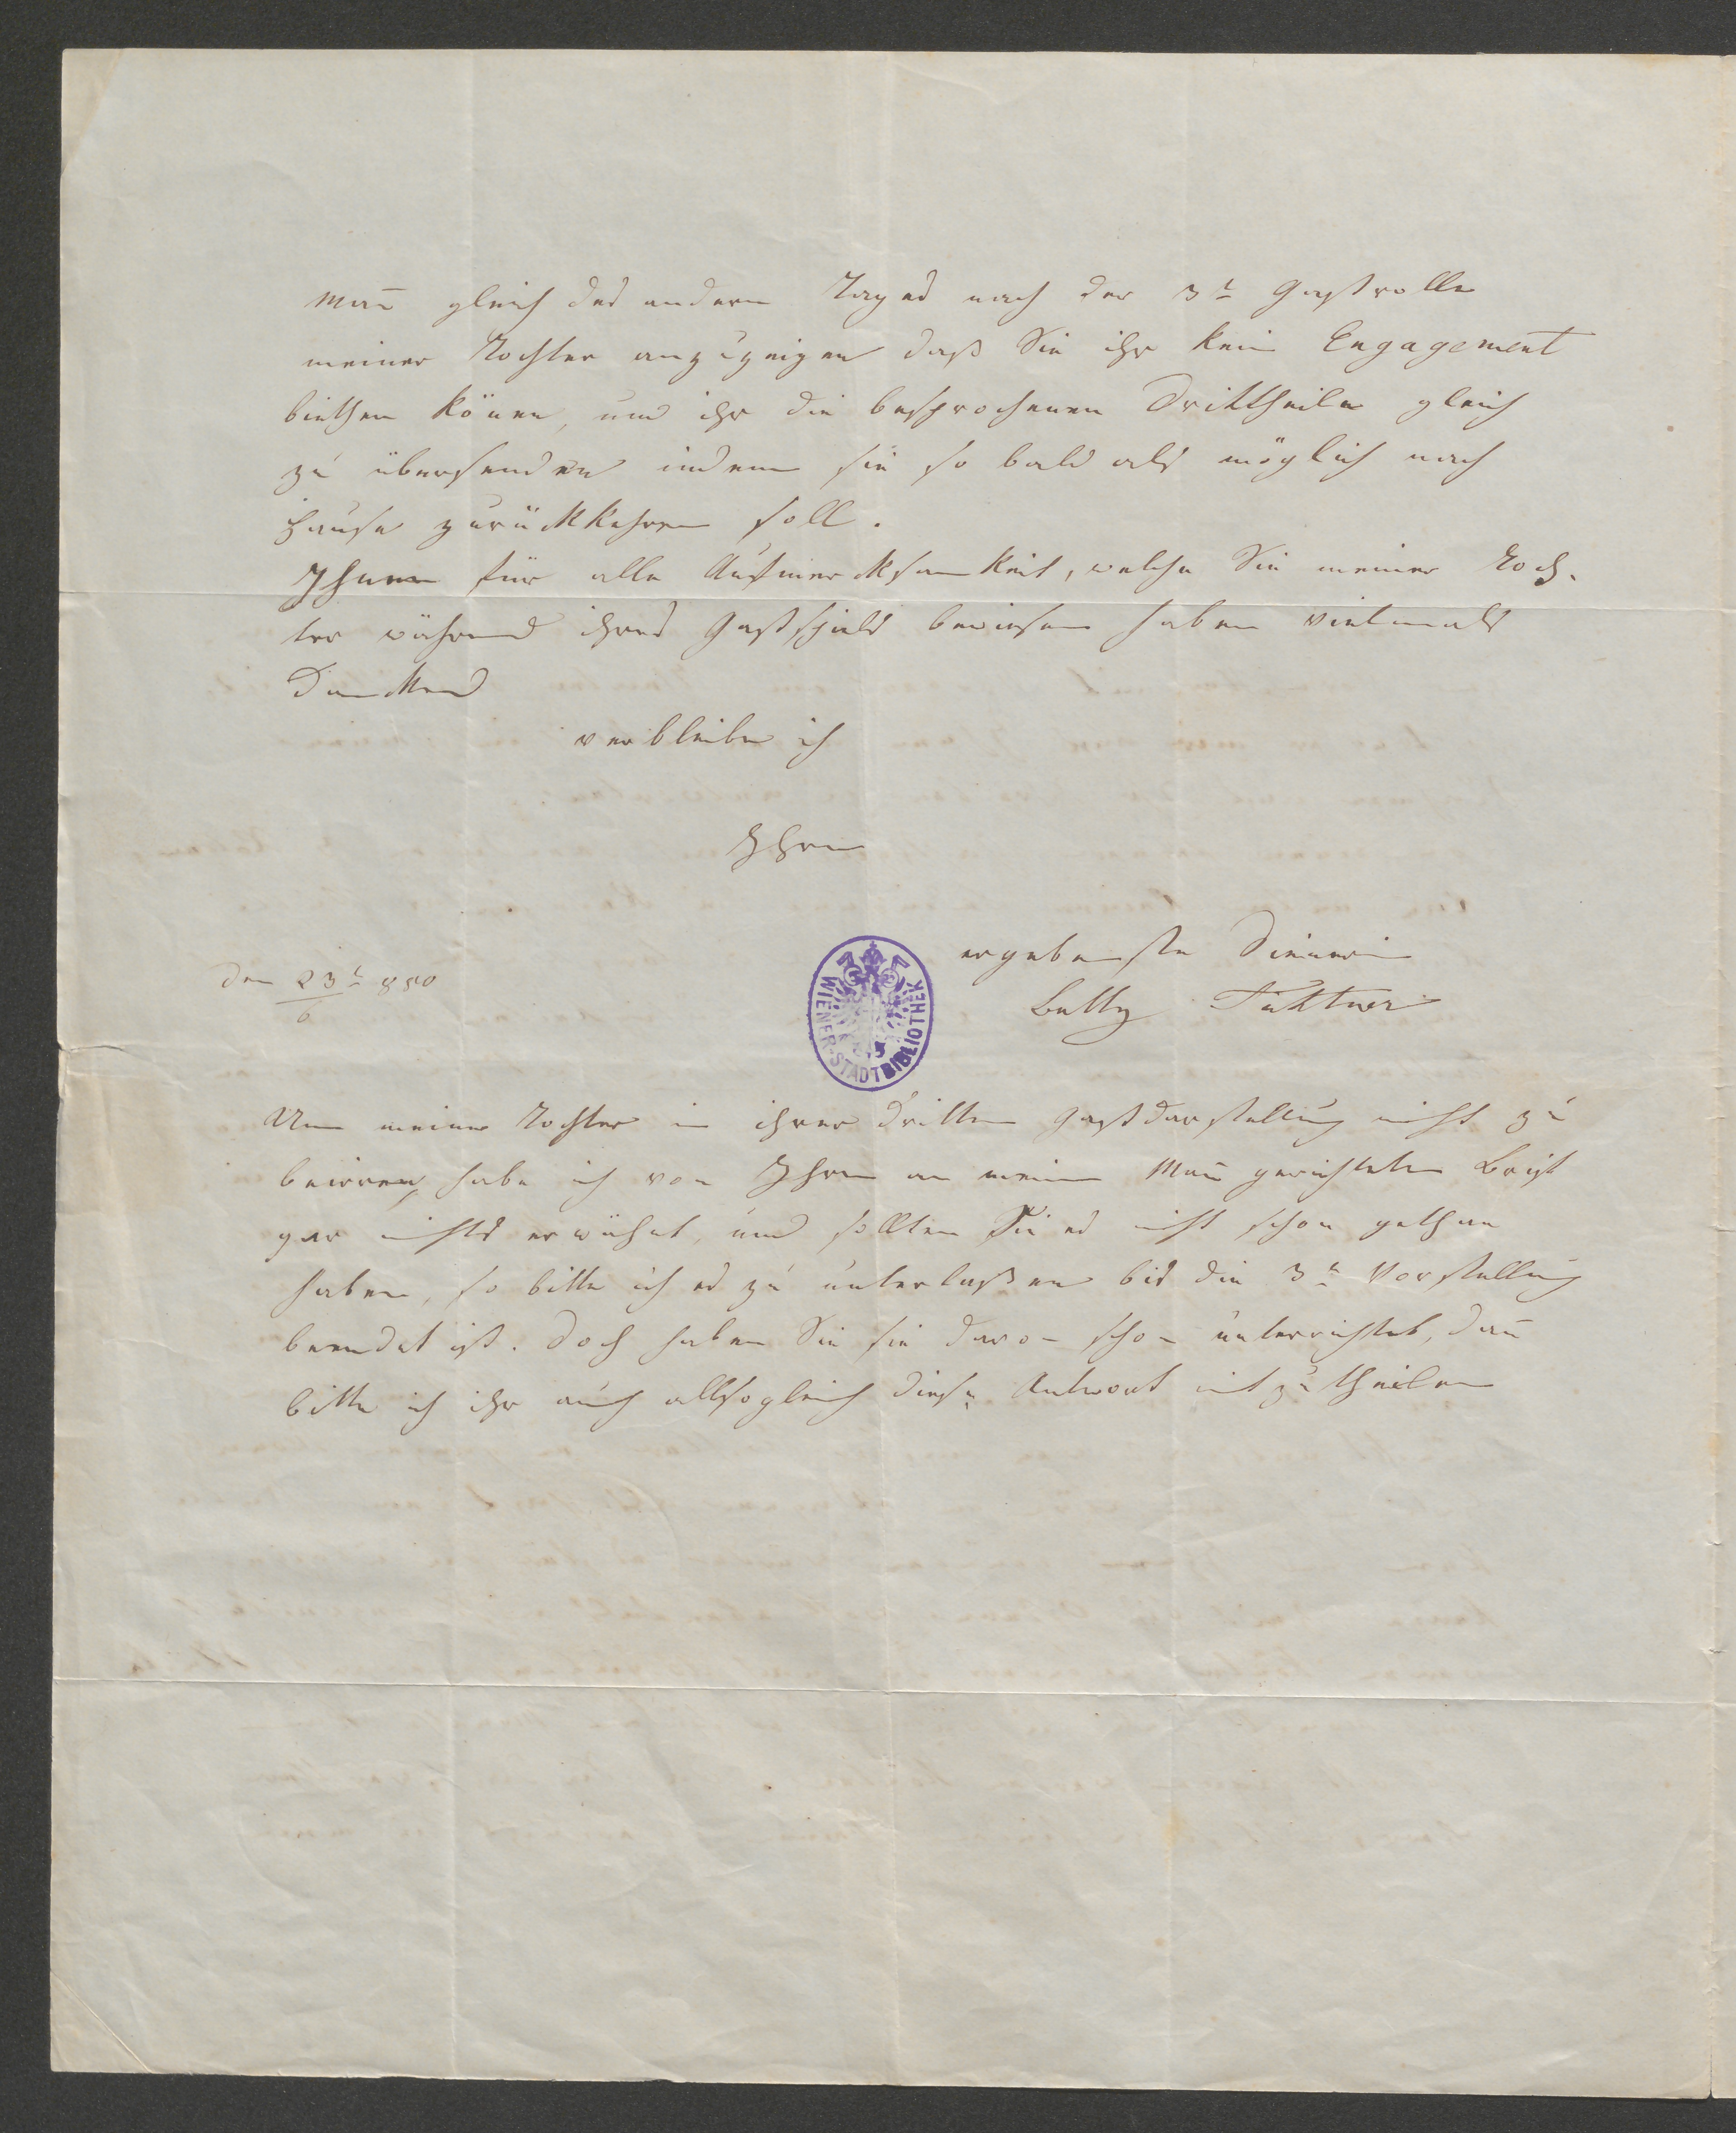 man̄ gleich des andern Tages nach der 3t Gastrolle
meiner Tochter anzuzeigen daß Sie ihr kein Engagement
biethen kön̄en, und ihr die besprochenen Drittheile gleich
zu übersenden indem sie so bald als möglich nach
Hause zurückkehren soll.
Ihnen für alle Aufmerksamkeit, welche Sie meiner Toch-
ter während ihres Gastspiels bewiesen haben vielmals
dankend
verbleibe ich
Ihre
ergebenste Dienerin
Betty Fichtner
den 23t/6 850
WIENER-STADTBIBLIOTHEK
Um meine Tochter in ihrer dritten Gastdarstellung nicht zu
beirren, habe ich von Ihren an meinen Man̄ gerichteten Brief
gar nichts erwähnt, und sollten Sie es nicht schon gethan
haben, so bitte ich es zu unterlaßen bis die 3te Vorstellung
beendet ist. Doch haben Sie sie davon schon unterrichtet, dan̄
bitte ich ihr auch allsogleich diese Antwort mitzutheilen